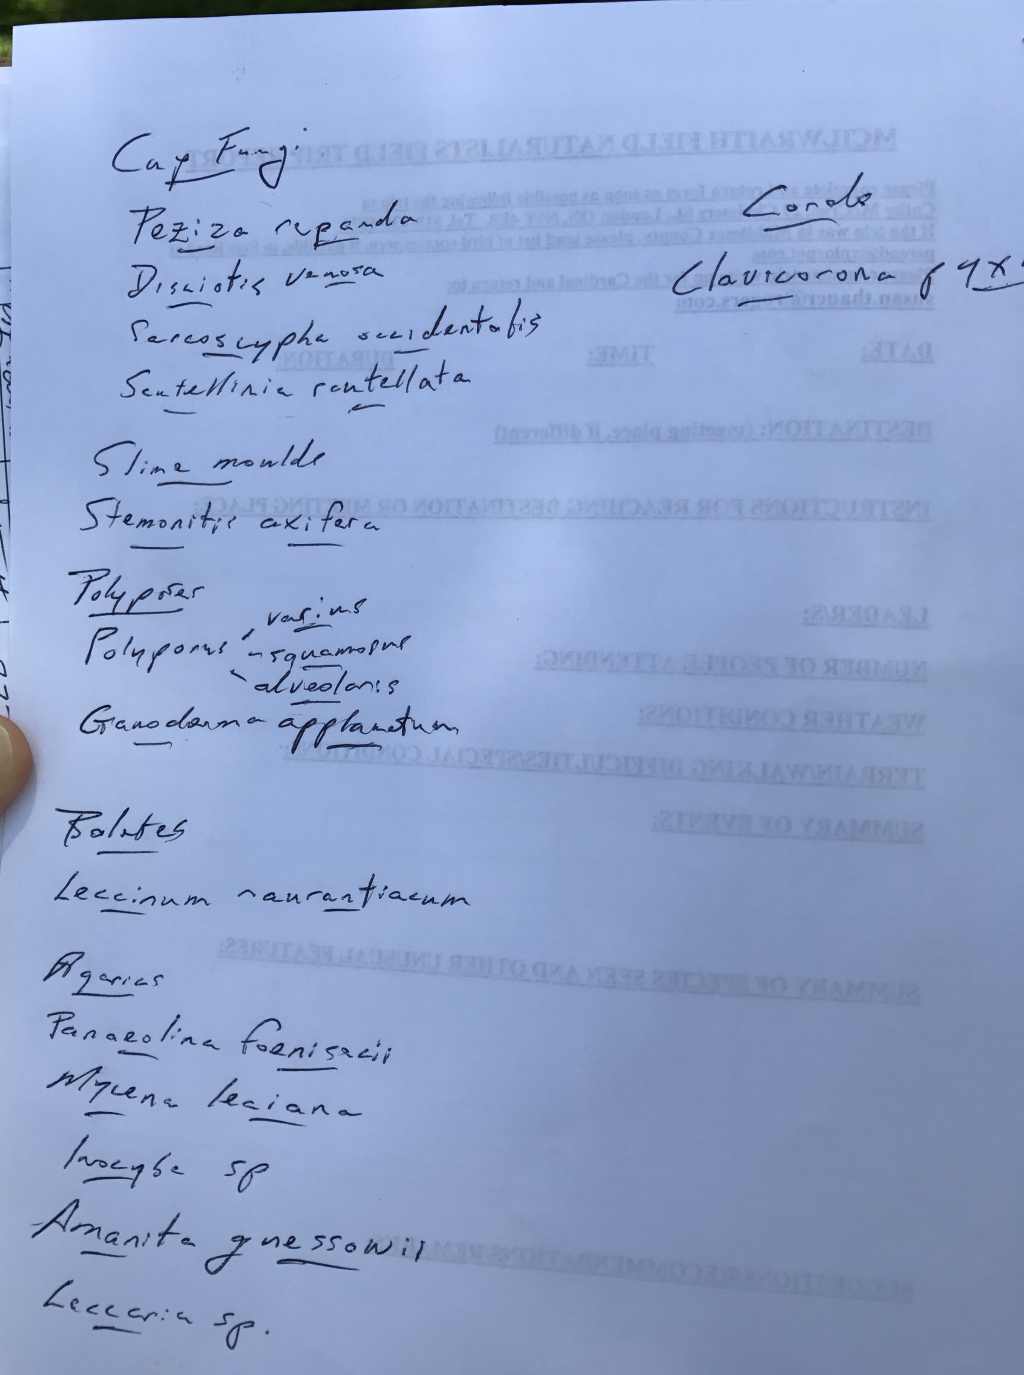 Cup Fungi
Peziza repanda
Disciotis venosa
Sarcoscypha occidentalis
Scutellinia scutellata
Slime moulds
Stemonitis axifera
Polypores
Polyporus varius
squamosus
alveolaris
Ganoderma applanatum
Boletes
Leccinum aurantiacum
Agarics
Panaeolina foenisecii
Mycena leaiana
Inocybe sp
Amanita guessowii
Laccaria sp.
Corals
Clavicorona
MCILWRAITH FIELD NATURALISTS FIELD TRIP REPORT
DATE: TIME: DURATION:
DESTINATION: (meeting place, if different)
INSTRUCTIONS FOR REACHING DESTINATION OR MEETING PLACE:
LEADER/S:
NUMBER OF PEOPLE ATTENDING:
WEATHER CONDITIONS:
TERRAIN/WALKING DIFFICULTIES/SPECIAL CONDITIONS:
SUMMARY OF EVENTS:
SUMMARY OF SPECIES SEEN AND OTHER UNUSUAL FEATURES: